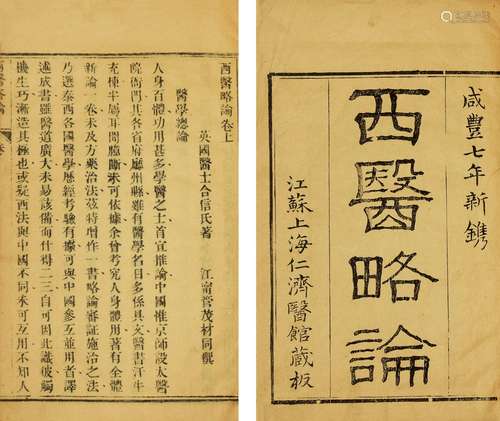 咸豐七年新鐫
西醫略論
江蘇上海仁濟醫館藏板
西醫略論卷上
英國醫士合信氏著 江甯管茂材同撰
醫學總論
人身百體功用甚多學醫之士首宜推論中國惟京師設太醫
院衙門其各省府廳州縣雖有醫學名目多係具文醫書汗牛
充棟半屬耳聞臆斷未可依據余曾考究人身體用著有全體
新論一卷未及方藥治法茲特增作一書略論審証施治之法
乃選泰西各國醫學歷經考驗有據可與中國參互並用者譯
述成書雖醫道廣大未易該備而什得二三自可因此識彼觸
機生巧漸造其極也或疑西法與中國不同未可互用不知人